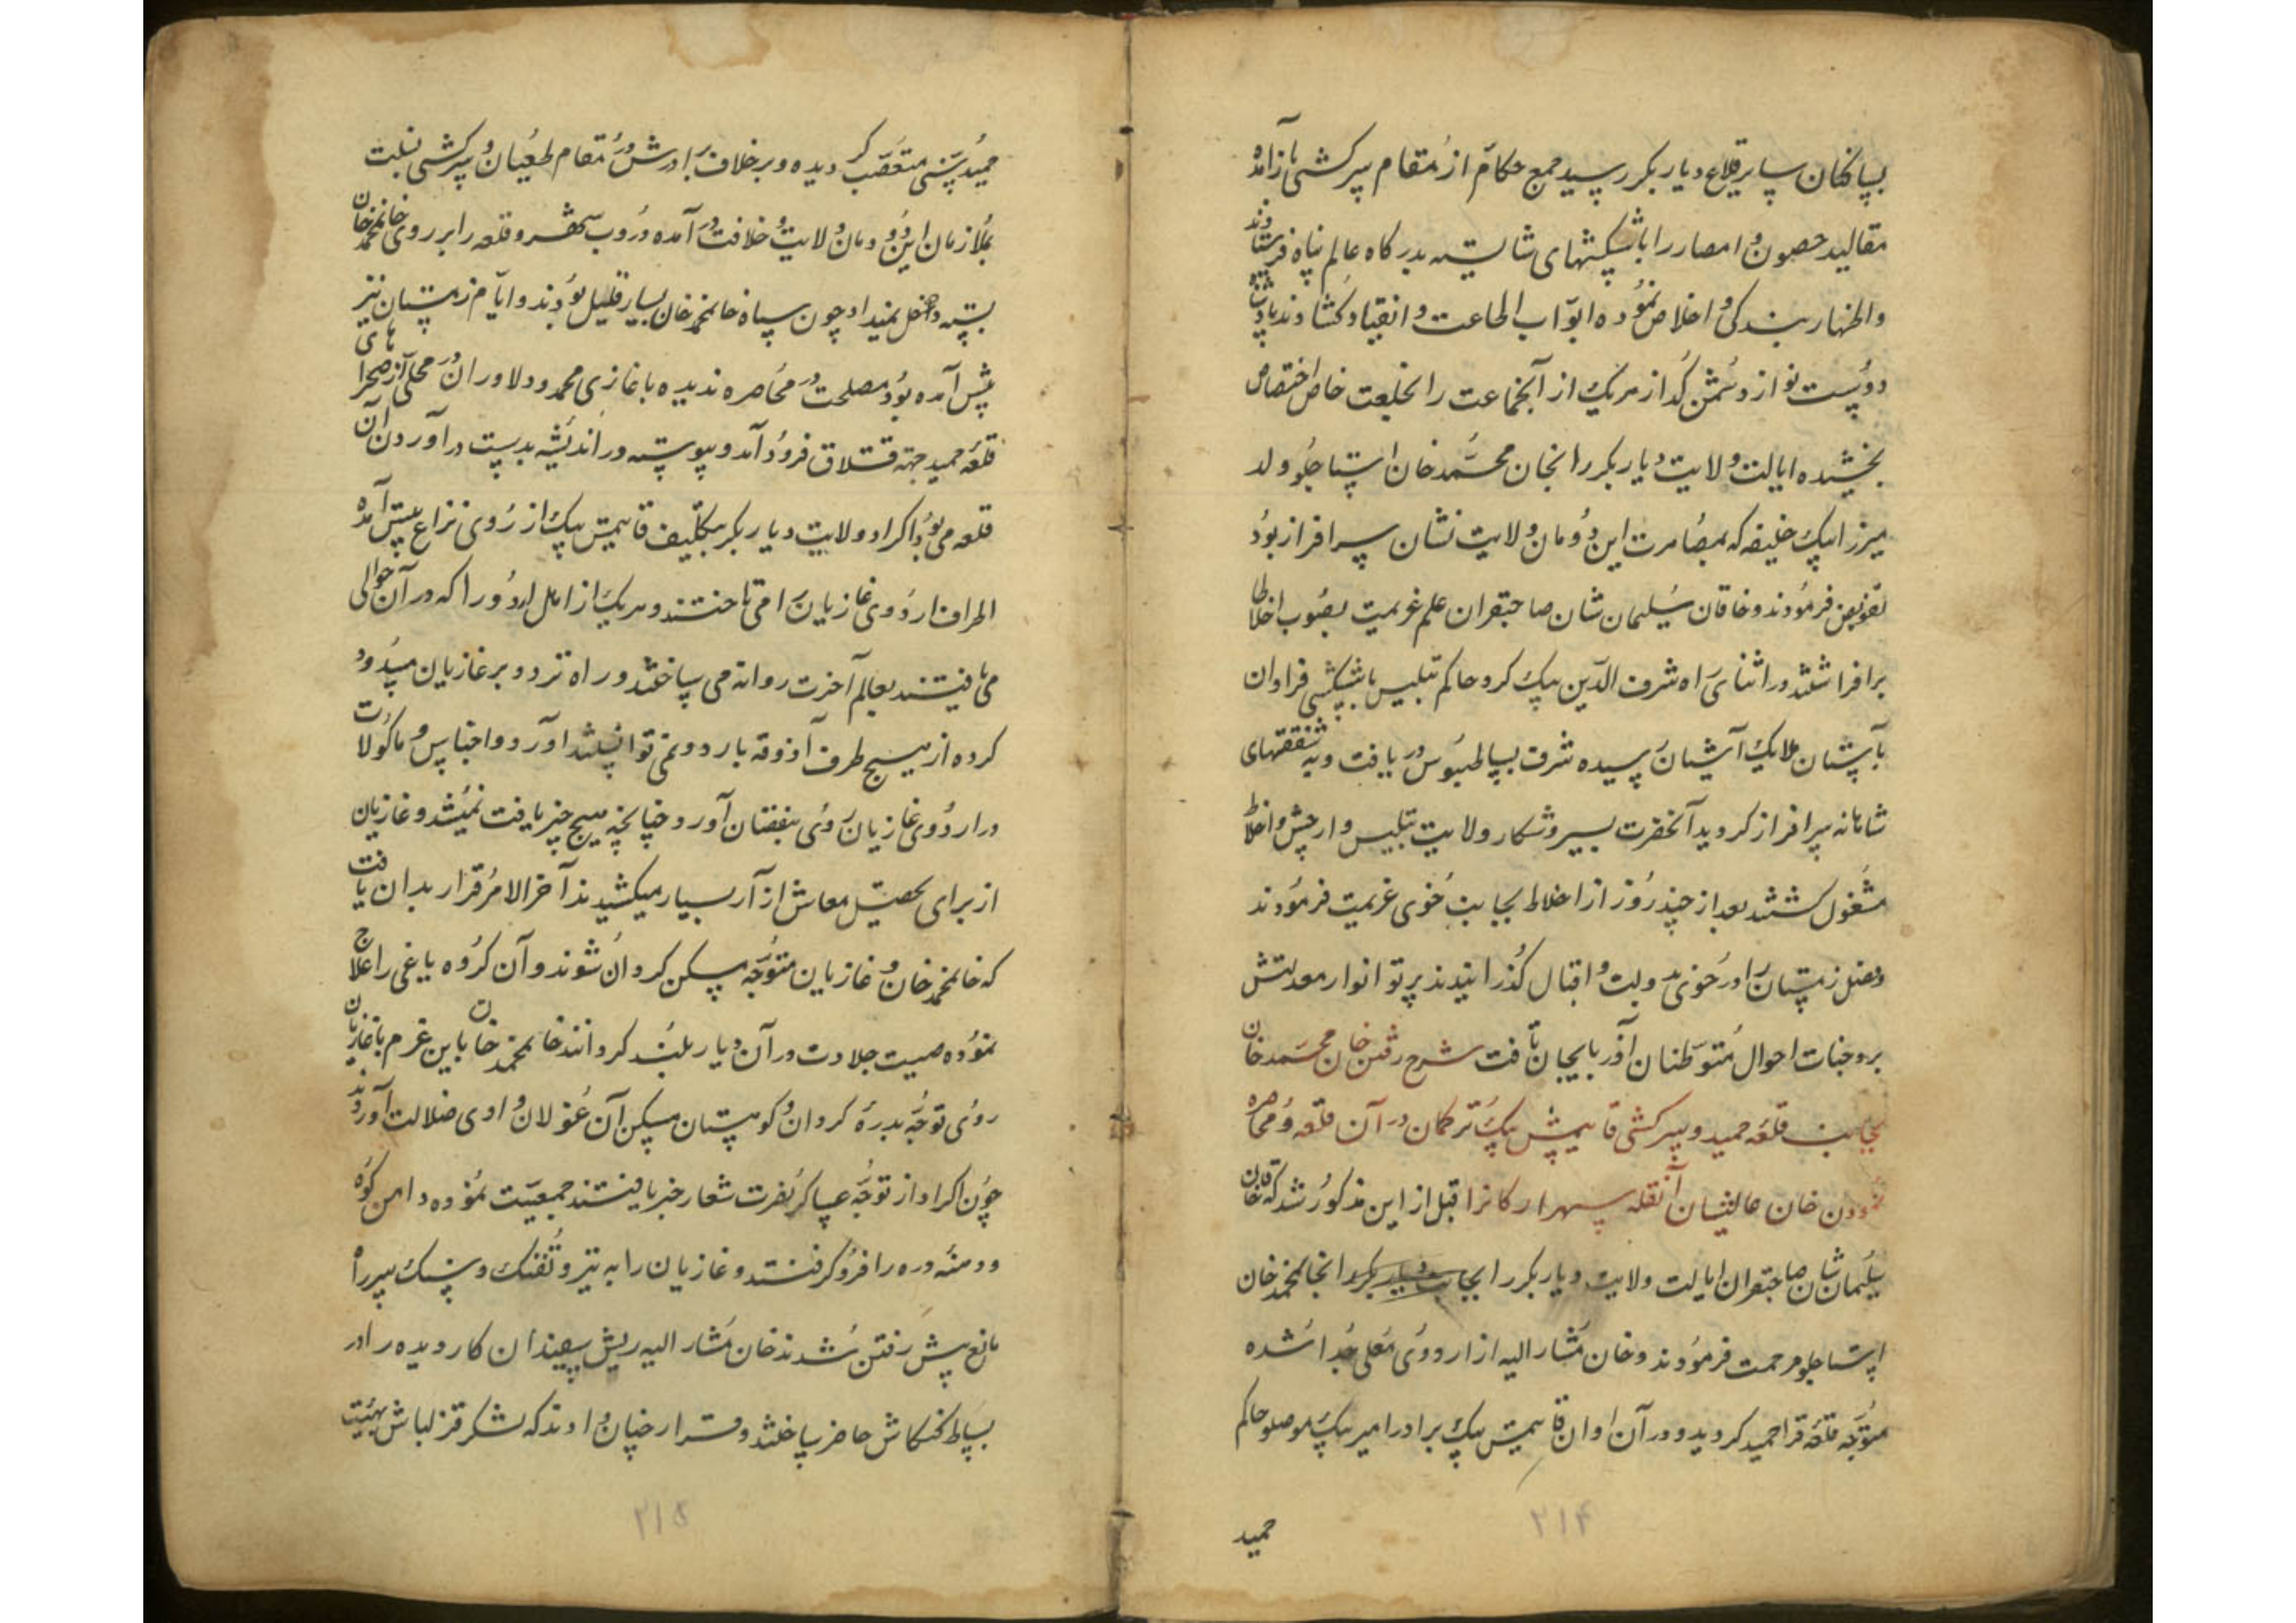 بساکنان سایر قلاع دیار بکر رسید جمع حکام از مقام سرکشی باز آمده
مقالید حصون و امصار را با پیشکشهای شایسته بدرگاه عالم پناه فرستادند
و اظهار بندگی و اخلاص نموده ابواب اطاعت و انقیاد گشادند پادشاه
دوست نواز دشمن گداز هر یک از آنجماعت را بخلعت خاص اختصاص
بخشیده ایالت ولایت دیار بکر را بخان محمد خان استاجلو ولد
میرزا بیک خلیفه که بمصاهرت این دودمان ولایت نشان سرافراز بود
تفویض فرمودند و خاقان سلیمان شان صاحبقران علم عزیمت بصوب اخلاط
برافراشتند در اثنای راه شرف الدین بیک کرد حاکم تبلیس با پیشکشی فراوان
بآستان ملایک آشیان رسیده شرف بساط بوس در یافت و به شفقتهای
شاهانه سرافراز گردید آنحضرت بسیر و شکار ولایت تبلیس و ارجیش و اخلاط
مشغول گشتند بعد از چند روز از اخلاط بجانب خوی عزیمت فرمودند
و فصل زمستان را در خوی بدولت و اقبال گذرانیدند پرتو انوار معدلتش
بر وجنات احوال متوطنان آذربایجان تافت شرح رفتن خان محمد خان
بجانب قلعه حمید و سرکشی قایتمش بیک ترکمان در آن قلعه و محاصره
نمودن خان عالیشان آنقلعه سپهر ارکانرا قبل از این مذکور شد که خاقان
سلیمان شان صاحبقران ایالت ولایت دیار بکر را بجانب دیار بکر را بخانمحمد خان
استاجلو مرحمت فرمودند و خان مشار الیه از اردوی معلی جدا شده
متوجه قلعه قرا حمید گردید و در آن اوان قایتمش بیک برادر امیر بیک موصلو حاکم
حمید
۲۱۴
حمید سنی متعصب گردیده و بر خلاف برادرش در مقام طغیان و سرکشی نسبت
بملازمان این دودمان ولایت و خلافت در آمده دروب شهر و قلعه را بر روی خانمحمد خان
بسته دخل نمیداد چون سپاه خانمحمد خان بسیار قلیل بودند و ایام زمستان نیز
پیش آمده بود مصلحت در محاصره ندیده با غازی محمد و دلاوران در محلی از صحراهای
قلعه حمید جهة قشلاق فرود آمد و پیوسته در اندیشه بدست درآوردن آن
قلعه می بود اکراد ولایت دیار بکر بتکلیف قایتمش بیک از روی نزاع پیش آمده
اطراف اردوی غازیان را می تاختند و هر یک از اهل اردو را که در آن حوالی
می یافتند بعالم آخرت روانه می ساختند و راه تردد بر غازیان مسدود
کرده از هیچ طرف آذوقه باردو نمی توانستند آورد و اجناس و ماکولات
در اردوی غازیان روی بنقصان آورد و چنانچه هیچ چیز یافت نمیشد و غازیان
از برای تحصیل معاش آزار بسیار میکشیدند آخر الامر قرار بدان یافت
که خانمحمد خان و غازیان متوجه مسکن کردان شوند و آن گروه یاغی را علاج
نموده صیت جلادت در آن دیار بلند گردانند خانمحمد خان باین عزم با غازیان
روی توجه بدره کردان و کوهستان مسکن آن غولان وادی ضلالت آوردند
چون اکراد از توجه عساکر نصرت شعار خبر یافتند جمعیت نموده دامن کوه
و دهنه دره را فرو گرفتند و غازیان را به تیر و تفنگ و سنگ سر راه
مانع پیش رفتن شدند خان مشار الیه ریش سفیدان کار دیده را در
بساط کنکاش حاضر ساختند و قرار چنان دادند که لشکر قزلباش بهیئت
۲۱۵